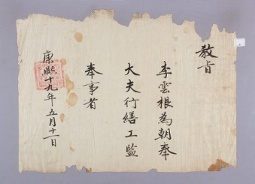 教旨
李雲根為朝奉
大夫行繕工監
奉事者
康熙十九年五月十二日